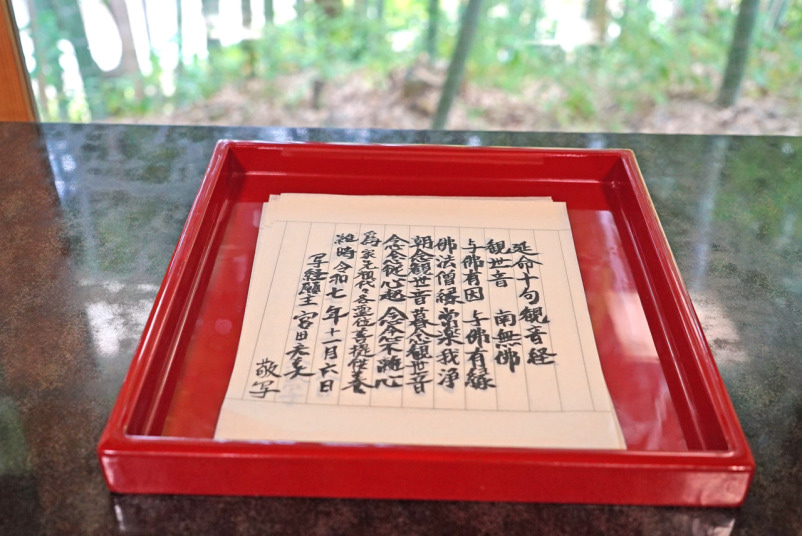 延命十句観音経
観世音　南無佛
与佛有因　与佛有縁
佛法僧縁　常楽我浄
朝念観世音　暮念観世音
念念従心起　念念不離心
為　家先祖代々各霊位菩提供養
維時　令和七年十一月六日
写経願主　宮田
敬写